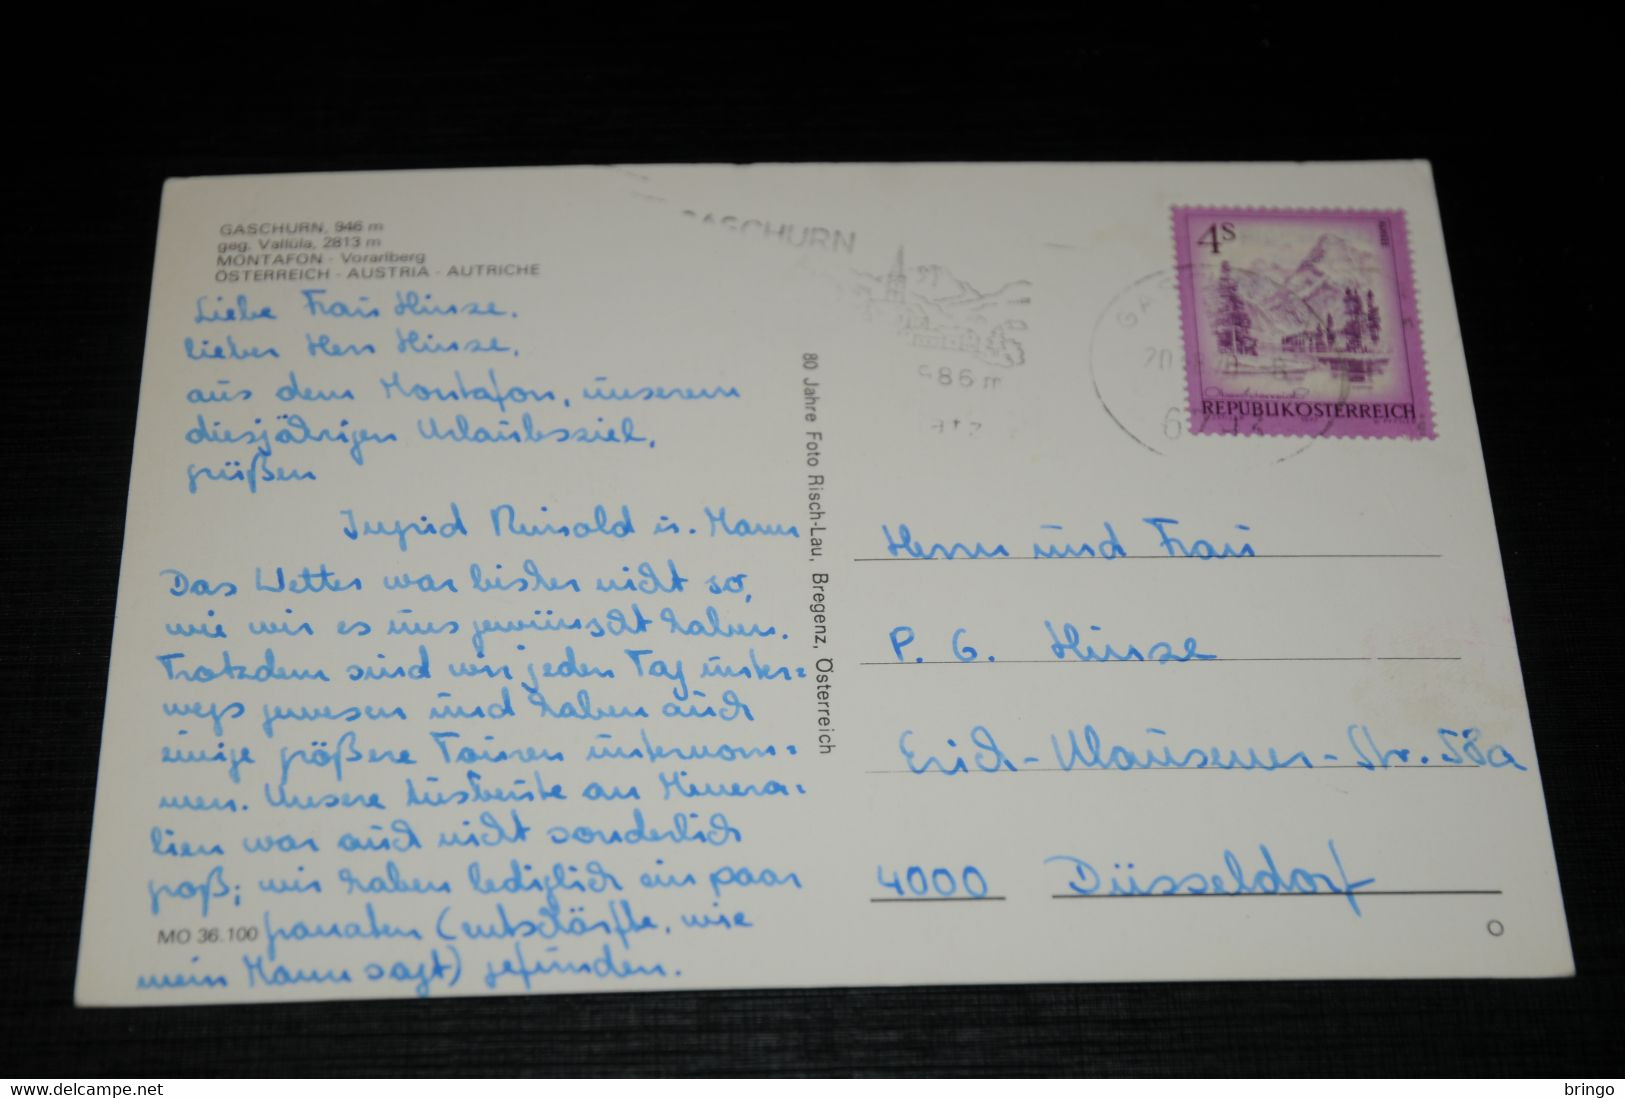 GASCHURN, 946 m
geg. Vallüla, 2813 m
MONTAFON - Vorarlberg
ÖSTERREICH - AUSTRIA - AUTRICHE
Liebe Frau Hinze,
lieber Herr Hinze,
aus dem Montafon, unserem
diesjährigen Urlaubsziel,
grüßen
Ingrid Reinold u. Mann
Das Wetter war bisher nicht so,
wie wir es uns gewünscht haben.
Trotzdem sind wir jeden Tag unter=
wegs gewesen und haben auch
einige größere Touren unternom=
men. Unsere Ausbeute an Minera=
lien war auch nicht sonderlich
groß; wir haben lediglich ein paar
MO 36.100 Granaten (entschärfte, wie
mein Mann sagt) gefunden.
80 Jahre Foto Risch-Lau, Bregenz, Österreich
GASCHURN
986 m
4S
REPUBLIK ÖSTERREICH
Herrn und Frau
P. G. Hinze
Erich-Klausener-Str. 58a
4000 Düsseldorf
delcampe.net
bringo